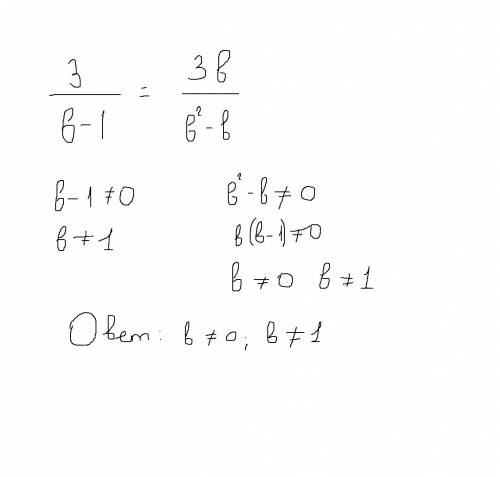 3/(в-1) = 3в/(в²-в)
в-1≠0 в²-в≠0
в≠1 в(в-1)≠0
в≠0 в≠1
Ответ: в≠0; в≠1